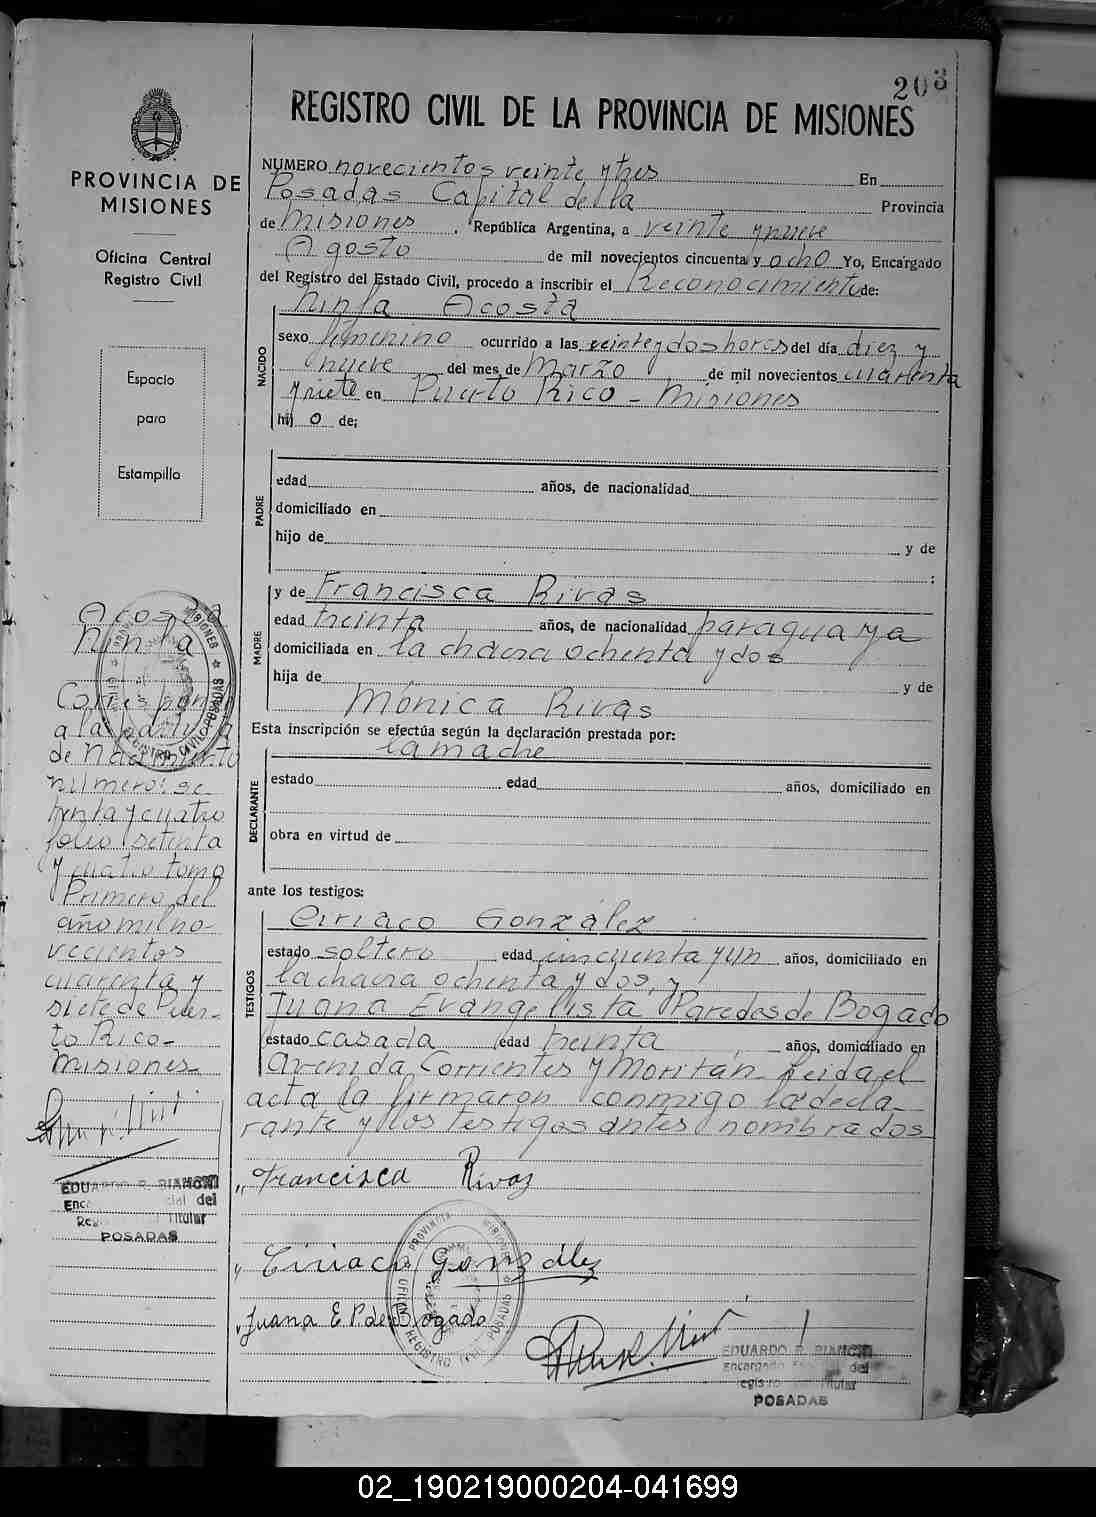 203
REGISTRO CIVIL DE LA PROVINCIA DE MISIONES
PROVINCIA DE
MISIONES
Oficina Central
Registro Civil
Espacio
para
Estampilla
NUMERO novecientos veinte y tres En
Posadas Capital de la Provincia
de Misiones, República Argentina, a veinte y nueve
Agosto de mil novecientos cincuenta y ocho Yo, Encargado
del Registro del Estado Civil, procedo a inscribir el Reconocimiento de:
Ninfa Acosta
NACIDO
sexo femenino ocurrido a las veinte y dos horas del día diez y
nueve del mes de Marzo de mil novecientos cuarenta
y siete en Puerto Rico - Misiones
hij o de;
PADRE
edad años, de nacionalidad
domiciliado en
hijo de y de
;
MADRE
y de Francisca Rivas
edad treinta años, de nacionalidad paraguaya
domiciliada en la chacra ochenta y dos
hija de y de
Mónica Rivas
Esta inscripción se efectúa según la declaración prestada por:
la madre
DECLARANTE
estado edad años, domiciliado en
obra en virtud de
ante los testigos:
TESTIGOS
Ciriaco González
estado soltero edad cincuenta y un años, domiciliado en
la chacra ochenta y dos, y
Juana Evangelista Paredes de Bogado
estado casada edad treinta años, domiciliado en
Avenida Corrientes y Moritán Leida el
acta la firmaron conmigo la decla-
rante y los testigos antes nombrados
Francisca Rivas
Ciriaco González
Juana E P de Bogado
EDUARDO R. BIANCHI
Encargado del
Registro Titular
POSADAS
Acosta
Ninfa
Corresponde
a la partida
de Nacimiento
número: se
tenta y cuatro
folio setenta
y cuatro tomo
Primero del
año mil no-
vecientos
cuarenta y
siete de Puer-
to Rico-
Misiones-
EDUARDO R. BIANCHI
del
Titular
POSADAS
02_190219000204-041699